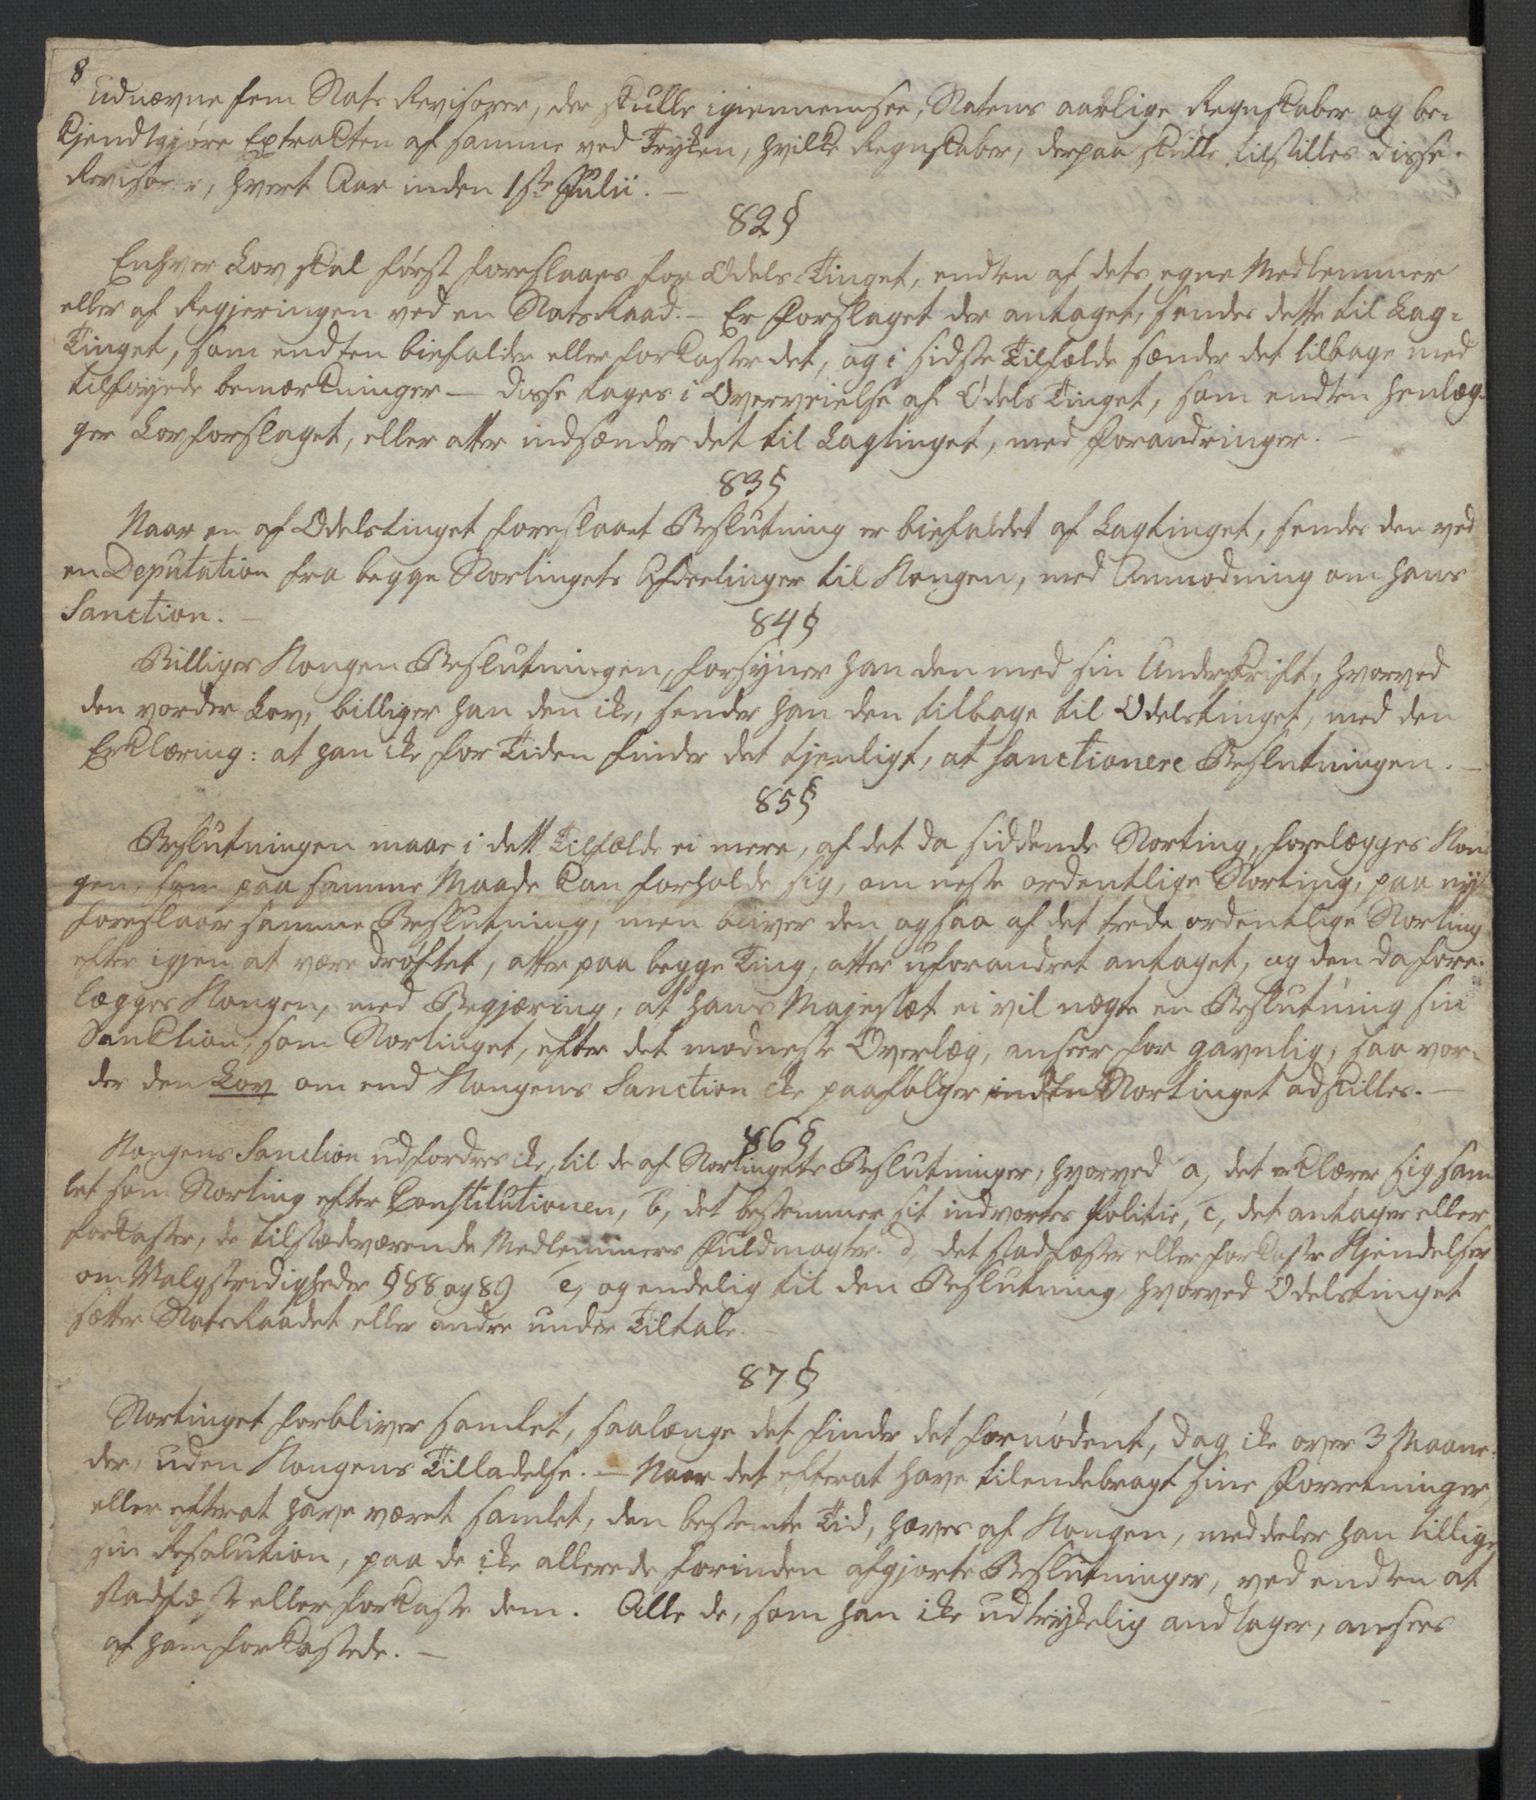 8
udnævne fem Stats Revisorer, der skulle igiennemsee, Statens aarlige Regnskaber og be-
kjendtgjøre Extrakten af samme ved Trykken, hvilke Regnskaber, derpaa skulle tilstilles disse
Revisorer, hvert Aar inden 1ste Julii. —
82 §
Enhver Lov skal først foreslaaes for Odels-Tinget, endten af dets egne Medlemmer
eller af Regjeringen ved en Stats Raad. — Er Forslaget der antaget, sendes dette til Lag-
Tinget, som endten biefalder eller forkaster det, og i sidste Tilfælde sænder det tilbage med
tilføiede bemærkninger — disse tages i Overveielse af Odels Tinget, som endten henlæg-
ger Lovforslaget, eller atter indsænder det til Lagtinget, med Forandringer. —
83 §
Naar en af Odelstinget foreslaaet Beslutning er biefaldet af Lagtinget, sendes den ved
en Deputation fra begge Stortingets Afdeelinger til Kongen, med Anmodning om hans
Sanction. —
84 §
Billiger Kongen Beslutningen, forsyner han den med sin Underskrift, hvorved
den vorder Lov, billiger han den ike, sender han den tilbage til Odelstinget, med den
Erklæring: at han ike for Tiden finder det tjenligt, at sanctionere Beslutningen. —
85 §
Beslutningen maae i dette Tilfælde ei mere, af det da siddende Storting, forelægges Kon
gen, som paa samme Maade kan forholde sig, om neste ordentlige Storting, paa nyt
foreslaaer samme Beslutning, men bliver den ogsaa af det trede ordentlige Storting
efter igjen at være drøftet, atter paa begge Ting, atter uforandret antaget, og den da fore-
lægges Kongen, med Begjæring, at hans Majestæt ei vil nægte en Beslutning sin
Sanktion, som Stortinget, efter det modneste Overlæg, anseer for gavnlig, saa vor-
der den Lov om end Kongens Sanction ike paafølger inden Stortinget adskilles. —
86 §
Kongens Sanction udfordres ike, til de af Stortingets Beslutninger, hvorved a, det erklærer sig sam
let som Storting efter Constitutionen, b, det bestemmer sit indvortes Politie, c, det antager eller
forkaster, de tilstædeværende Medlemmers Fuldmagter. d, det stadfæster eller forkaster Kjendelser
om Valgstridigheder § 88 og 89 e, og endelig til den Beslutning hvorved Odelstinget
sætter Stats Raadet eller andre under Tiltale. —
87 §
Stortinget forbliver samlet, saalænge det finder det fornødent, dog ike over 3 Maane-
der, uden Kongens Tilladelse. — Naar det efterat have tilendebragt sine Forretninger,
eller efterat have været samlet, den bestemte Tid, hæves af Kongen, meddeler han tillige
sin Resolution, paa de ike allerede forinden afgjorte Beslutninger, ved endten at
stadfæste eller forkaste dem. Alle de, som han ike udtrykkelig andtager, ansees
af ham forkastede. —